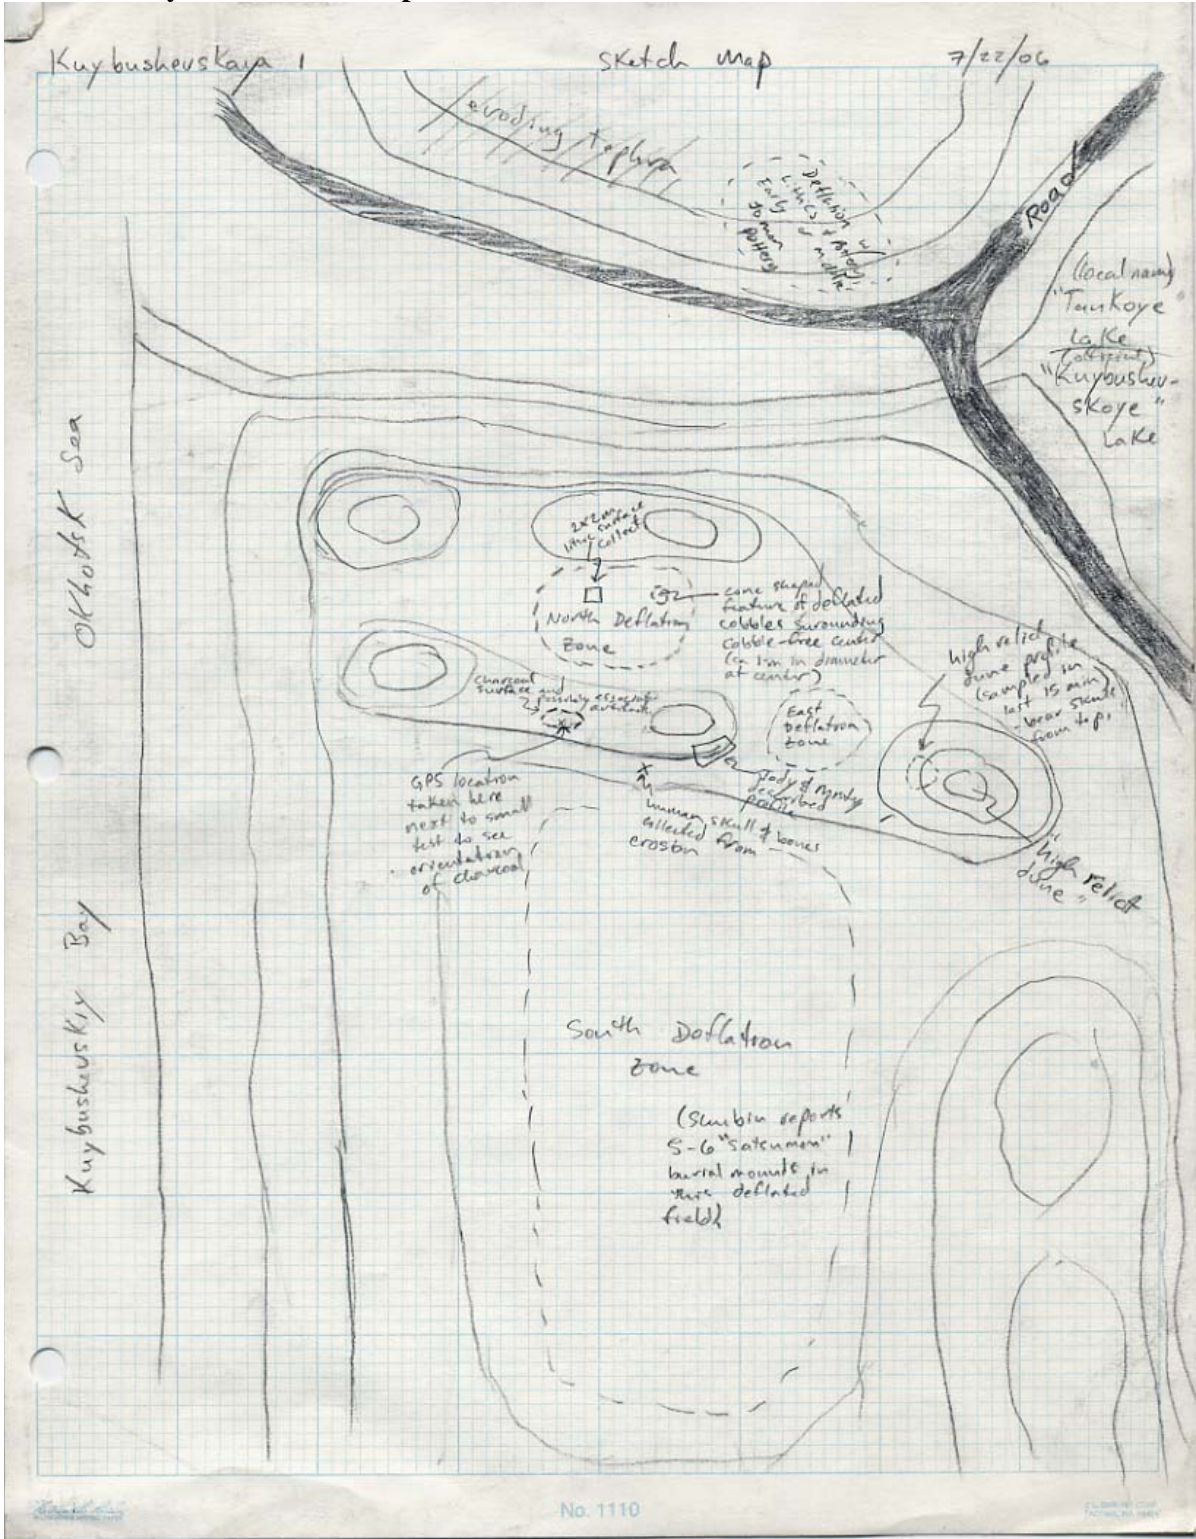 Kuybushevskaya 1
Sketch Map
7/22/06
eroding tephra
Deflation w/
Lithics & Pottery
Early or middle
Jomon
pottery
Road
(local name)
"Tankoye"
Lake
(official)
"Kuybushev-
skoye"
Lake
Okhotsk Sea
2x2m
lithic surface
collect
North Deflation
Zone
cone shaped
feature of deflated
cobbles surounding
cobble-free center
(ca 1m in diameter
at center)
high relict
dune profile
(sampled in
last 15 min)
- bear skull
from top.
charcoal
surface and
possibly associated
East
Deflation
Zone
GPS location
taken here
next to small
test to see
orientation
of charcoal
Jody &
described
profile
human skull & bones
collected from
erosion
"high relict
dune"
Kuybushevskiy Bay
South Deflation
Zone
(Shubin reports
5-6 "Satsumon"
burial mounds in
this deflated
field)
No. 1110